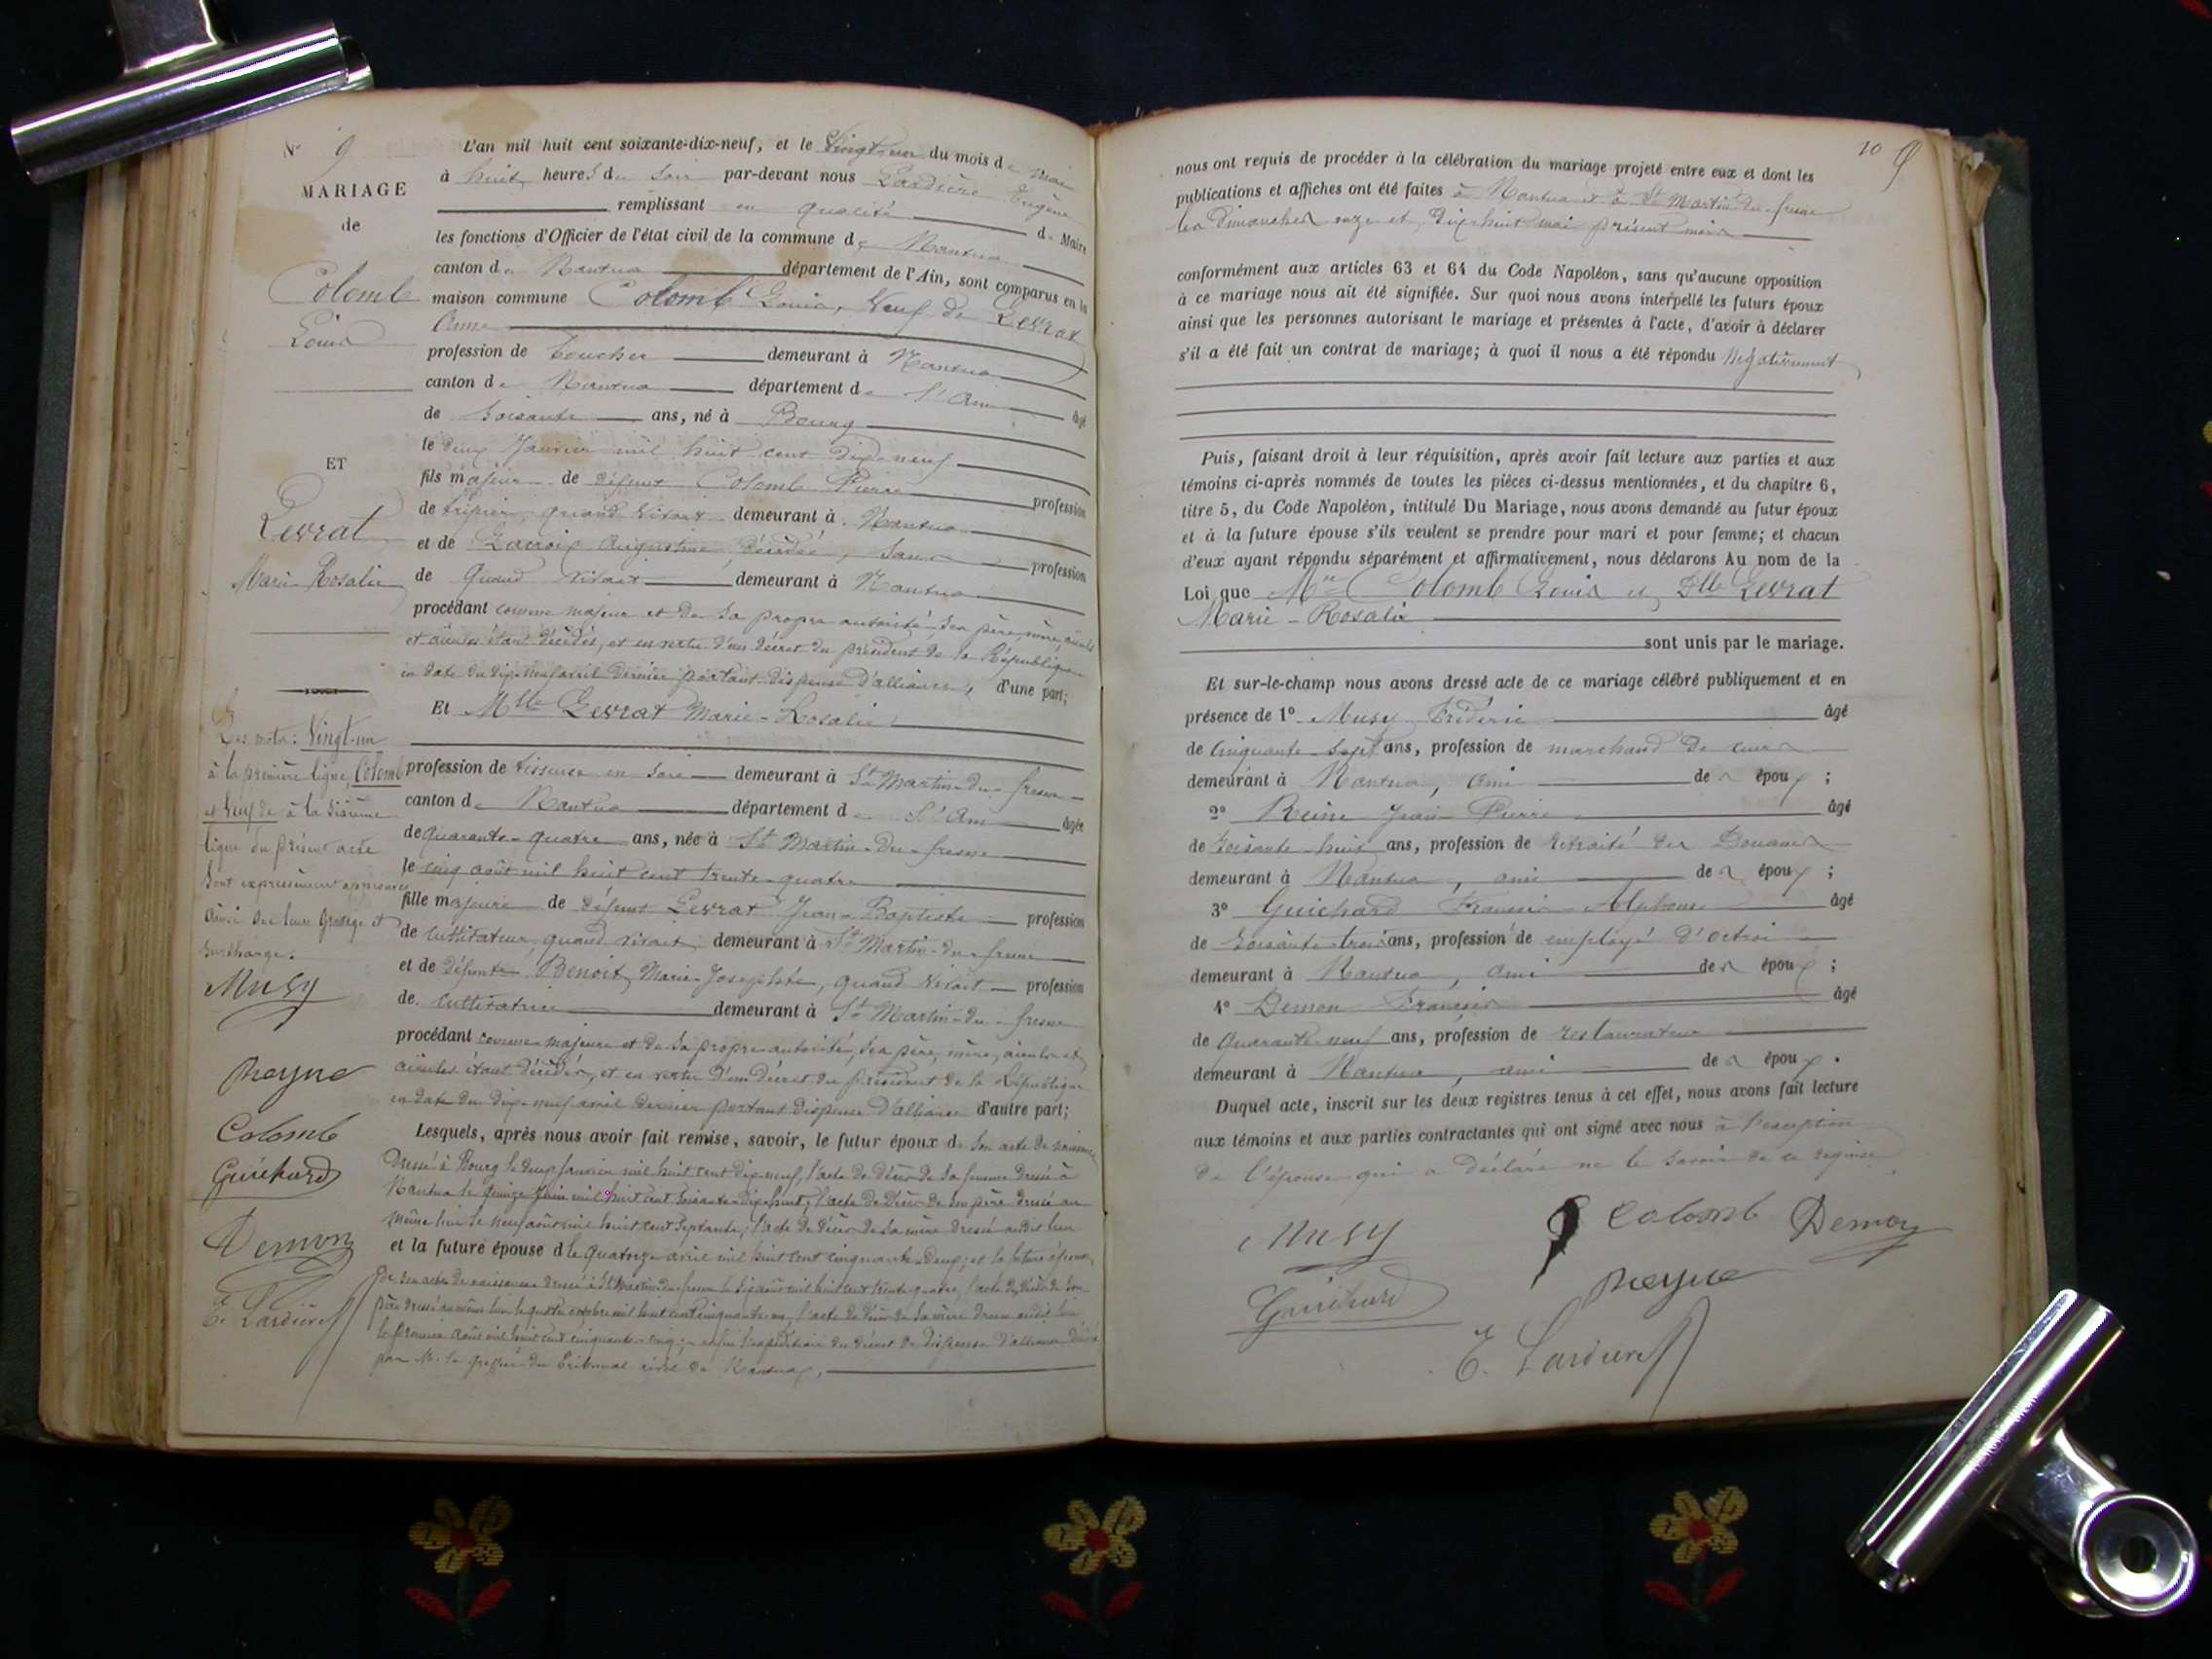 N° 9
MARIAGE
de
Colomb
Louis
ET
Levrat
Marie-Rosalie
Les mots: Vingt-un
à la première ligne, Colomb
et Veuf de à la sixième
ligne du présent acte
sont expressément approuvés
ainsi que leur grattage et
surcharge.
Musy
Reyne
Colomb
Guichard
Demon
E. Lardière
L'an mil huit cent soixante-dix-neuf, et le Vingt-un du mois de mai
à huit heures du soir par-devant nous Lardière Eugène
remplissant en qualité de Maire
les fonctions d'Officier de l'état civil de la commune de Nantua
canton de Nantua département de l'Ain, sont comparus en la
maison commune Colomb Louis, Veuf de Levrat
Anne
profession de boucher demeurant à Nantua
canton de Nantua département de l'Ain âgé
de soixante ans, né à Bourg
le deux Janvier mil huit cent dix-neuf
fils majeur de défunt Colomb Pierre profession
de tripier, quand vivait demeurant à Nantua
et de Lacroix Augustine, décédée, sans profession
de quand vivait demeurant à Nantua
procédant comme majeur et de sa propre autorité, ses père, mère, aïeuls
et aïeules étant décédés, et en vertu d'un décret du président de la République
en date du dix-neuf avril dernier portant dispense d'alliance, d'une part;
Et Mlle Levrat Marie-Rosalie
profession de tisseuse en soie demeurant à St Martin-du-fresne
canton de Nantua département de l'Ain âgée
de quarante-quatre ans, née à St Martin-du-fresne
le cinq août mil huit cent trente-quatre
fille majeure de défunt Levrat Jean-Baptiste profession
de cultivateur, quand vivait, demeurant à St Martin-du-fresne
et de défunte Benoit Marie-Josephte, quand vivait profession
de cultivatrice demeurant à St Martin-du-fresne
procédant comme majeure et de sa propre autorité, ses père, mère, aïeuls et
aïeules étant décédés, et en vertu d'un décret du président de la République
en date du dix-neuf avril dernier portant dispense d'alliance d'autre part;
Lesquels, après nous avoir fait remise, savoir, le futur époux de son acte de naissance
dressé à Bourg le deux Janvier mil huit cent dix-neuf, l'acte de décès de sa femme dressé à
Nantua le quinze Juin mil huit cent soixante-dix-huit, l'acte de décès de son père dressé au
même lieu le neuf août mil huit cent septante, l'acte de décès de sa mère dressé audit lieu
et la future épouse d le quatorze avril mil huit cent cinquante-deux; et la future épouse
de son acte de naissance dressé à St Martin-du-fresne le six août mil huit cent trente-quatre, l'acte de décès de son
père dressé au même lieu le quatre octobre mil huit cent cinquante-un, l'acte de décès de sa mère dressé audit lieu
le premier août mil huit cent cinquante-cinq; enfin l'expédition du décret de dispense d'alliance
par M. le greffier du Tribunal civil de Nantua,
10 9
nous ont requis de procéder à la célébration du mariage projeté entre eux et dont les
publications et affiches ont été faites à Nantua et à St Martin-du-fresne
les dimanches onze et dix-huit mai présent mois
conformément aux articles 63 et 64 du Code Napoléon, sans qu'aucune opposition
à ce mariage nous ait été signifiée. Sur quoi nous avons interpellé les futurs époux
ainsi que les personnes autorisant le mariage et présentes à l'acte, d'avoir à déclarer
s'il a été fait un contrat de mariage; à quoi il nous a été répondu Négativement
Puis, faisant droit à leur réquisition, après avoir fait lecture aux parties et aux
témoins ci-après nommés de toutes les pièces ci-dessus mentionnées, et du chapitre 6,
titre 5, du Code Napoléon, intitulé Du Mariage, nous avons demandé au futur époux
et à la future épouse s'ils veulent se prendre pour mari et pour femme; et chacun
d'eux ayant répondu séparément et affirmativement, nous déclarons Au nom de la
Loi que Mr Colomb Louis et Dlle Levrat
Marie-Rosalie
sont unis par le mariage.
Et sur-le-champ nous avons dressé acte de ce mariage célébré publiquement et en
présence de 1° Musy Frédéric âgé
de cinquante-sept ans, profession de marchand de cuirs
demeurant à Nantua, ami des époux;
2° Reine Jean Pierre âgé
de soixante-huit ans, profession de retraité des Douanes
demeurant à Nantua, ami des époux;
3° Guichard François Alphonse âgé
de soixante-trois ans, profession de employé d'octroi
demeurant à Nantua, ami des époux;
4° Demon François âgé
de quarante-neuf ans, profession de restaurateur
demeurant à Nantua, ami des époux.
Duquel acte, inscrit sur les deux registres tenus à cet effet, nous avons fait lecture
aux témoins et aux parties contractantes qui ont signé avec nous à l'exception
de l'épouse qui a déclaré ne le savoir de ce requise.
Musy
Colomb
Demon
Guichard
Reyne
E. Lardière